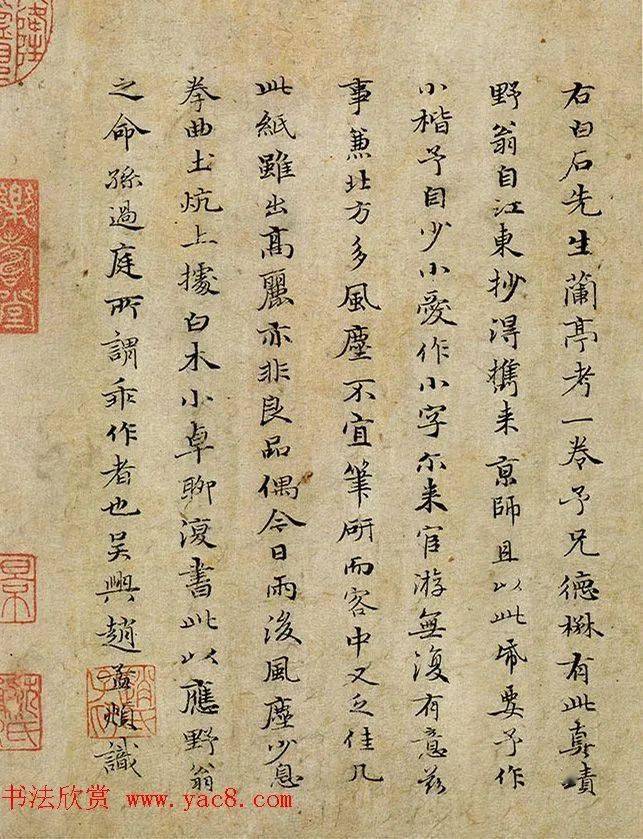 右白石先生蘭亭考一卷予兄德楙有此真蹟
野翁自江東抄得攜来京師且以此帋要予作
小楷予自少小愛作小字尓来宦游無復有意茲
事兼北方多風塵不宜筆研而客中又乏佳几
此紙雖出高麗亦非良品偶今日雨後風塵少息
拳曲土炕上據白木小卓聊復書此以應野翁
之命孫過庭所謂乖作者也吴興趙孟頫識
趙氏子昂
樂壽堂
书法欣赏 www.yac8.com